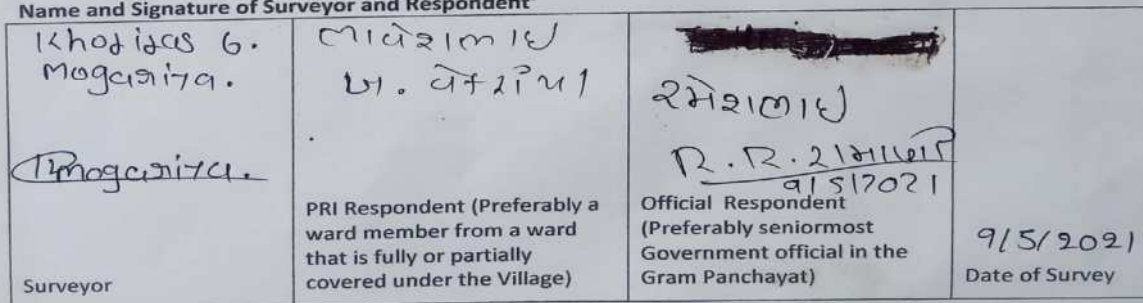 Name and Signature of Surveyor and Respondent
Khodidas G.
Mogariya.
Mogariya.
Surveyor
ભાવેશભાઇ
ખ.
PRI Respondent (Preferably a
ward member from a ward
that is fully or partially
covered under the Village)
રમેશભાઇ
R. R.
9/5/2021
Official Respondent
(Preferably seniormost
Government official in the
Gram Panchayat)
9/5/2021
Date of Survey